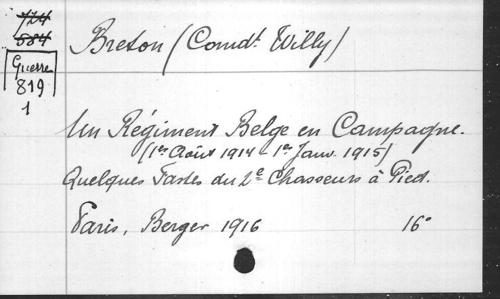 724
584
Guerre
819
1
Breton (Comdt. Willy)
Un Régiment Belge en Campagne.
(1er Août 1914 - 1er Janv. 1915)
Quelques Fastes du 2e Chasseurs à Pied.
Paris, Berger 1916 16°